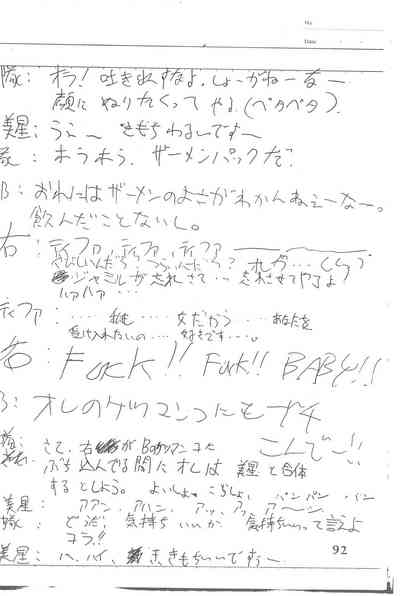 No.
Date
隊：オラ！吐き出すなよ。しょーがねーなー
顔に ぬりたくって やる（ベタベタ）。
美星：うえ〜 きもちわるいです〜
ホラホラ、ザーメンパックだ。
B：おれにはザーメンのよさがわかんねぇーなー。
飲んだことないし。
右：ティファ、ティファ、ティファ
さびしいんだろ？つらいんだろ？オレが…
ジャミルが忘れさて…忘れさせてやるよ
ハァハァ…
ティファ：……私…女だから…あなたを
受け入れたいの…好きです…。
右：Fuck!! Fuck!! BABY!!
B：オレのケツマンコにもブチ
こんでー!!
さて、右がBのケツマンコに
ぶち込んでる間に オレは 美星と合体
するとしよう。よいしょ、こらしょ、パンパンパン
美星：アアン、アハン、アッ、アッ、ア〜ン、
隊：どうだ、気持ちいいか、気持ちいいって言えよ
コラ!!
美星：ハ、ハイ、き、きもちいいですぅー
92